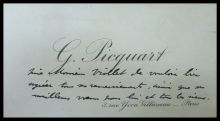 G. Picquart
prie Monsieur Viollet de vouloir bien
agréer tous ses remerciements, ainsi que ses
meilleurs vœux pour lui et tous les siens.
3, rue Yvon Villarceau _ Paris